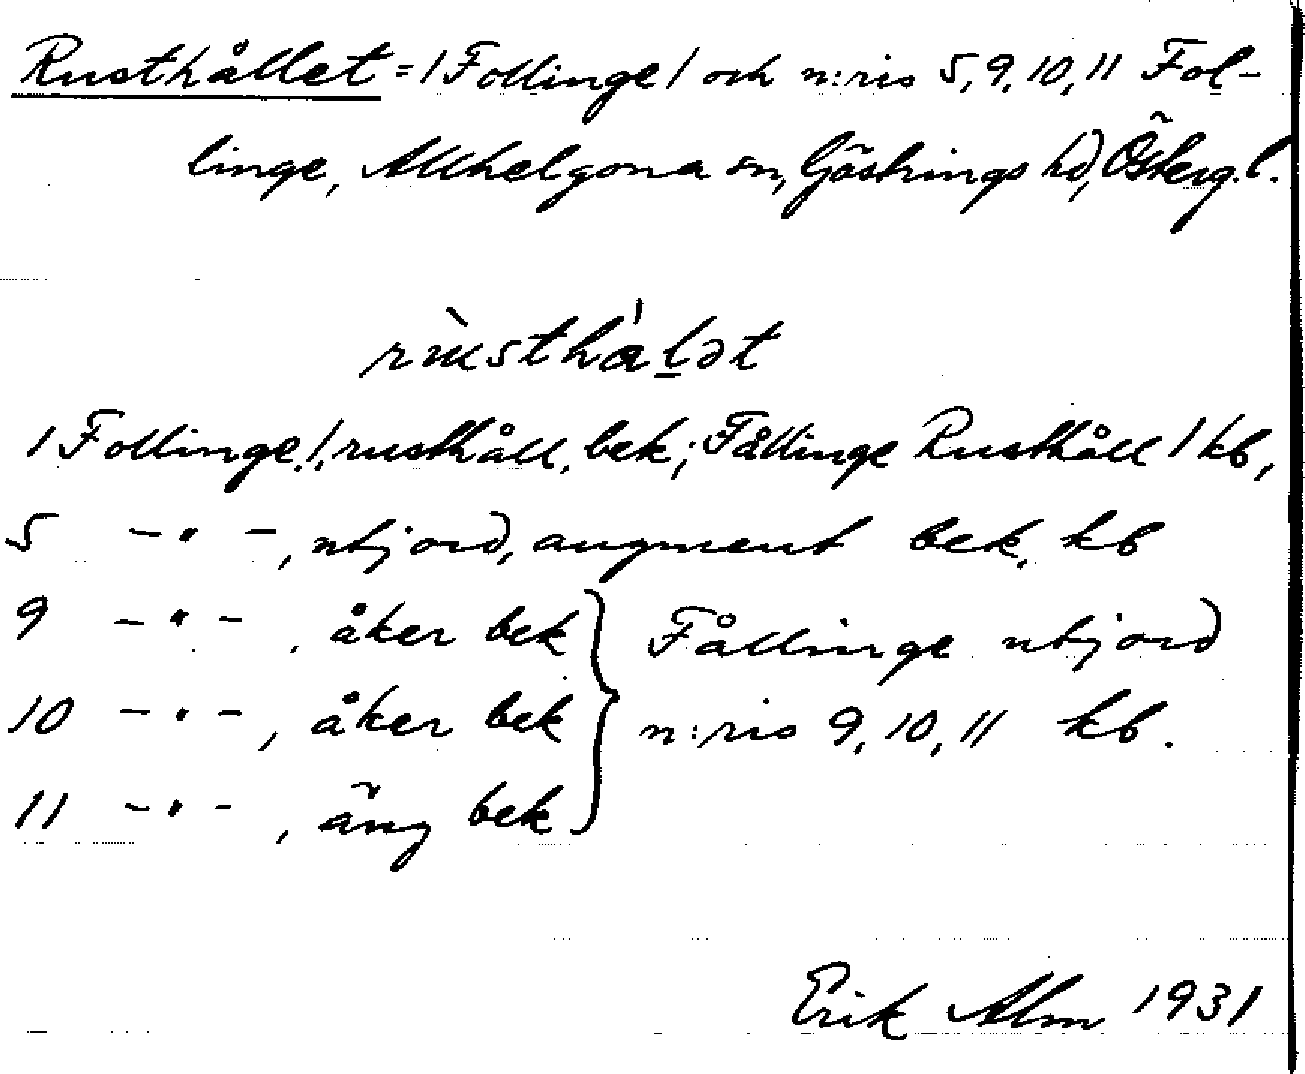 Rusthållet = 1 Follinge 1 och n:ris 5, 9, 10, 11 Fol-
linge, Allhelgona sn, Göstrings hd, Österg. l.
1 Follinge 1, rusthåll, bek; Fållinge Rusthåll 1 kb,
5 - " -, utjord, augment bek, kb
9 - " -, åker bek } Fållinge utjord
10 - " -, åker bek } n:ris 9, 10, 11 kb.
11 - " -, äng bek }
Erik Alm 1931